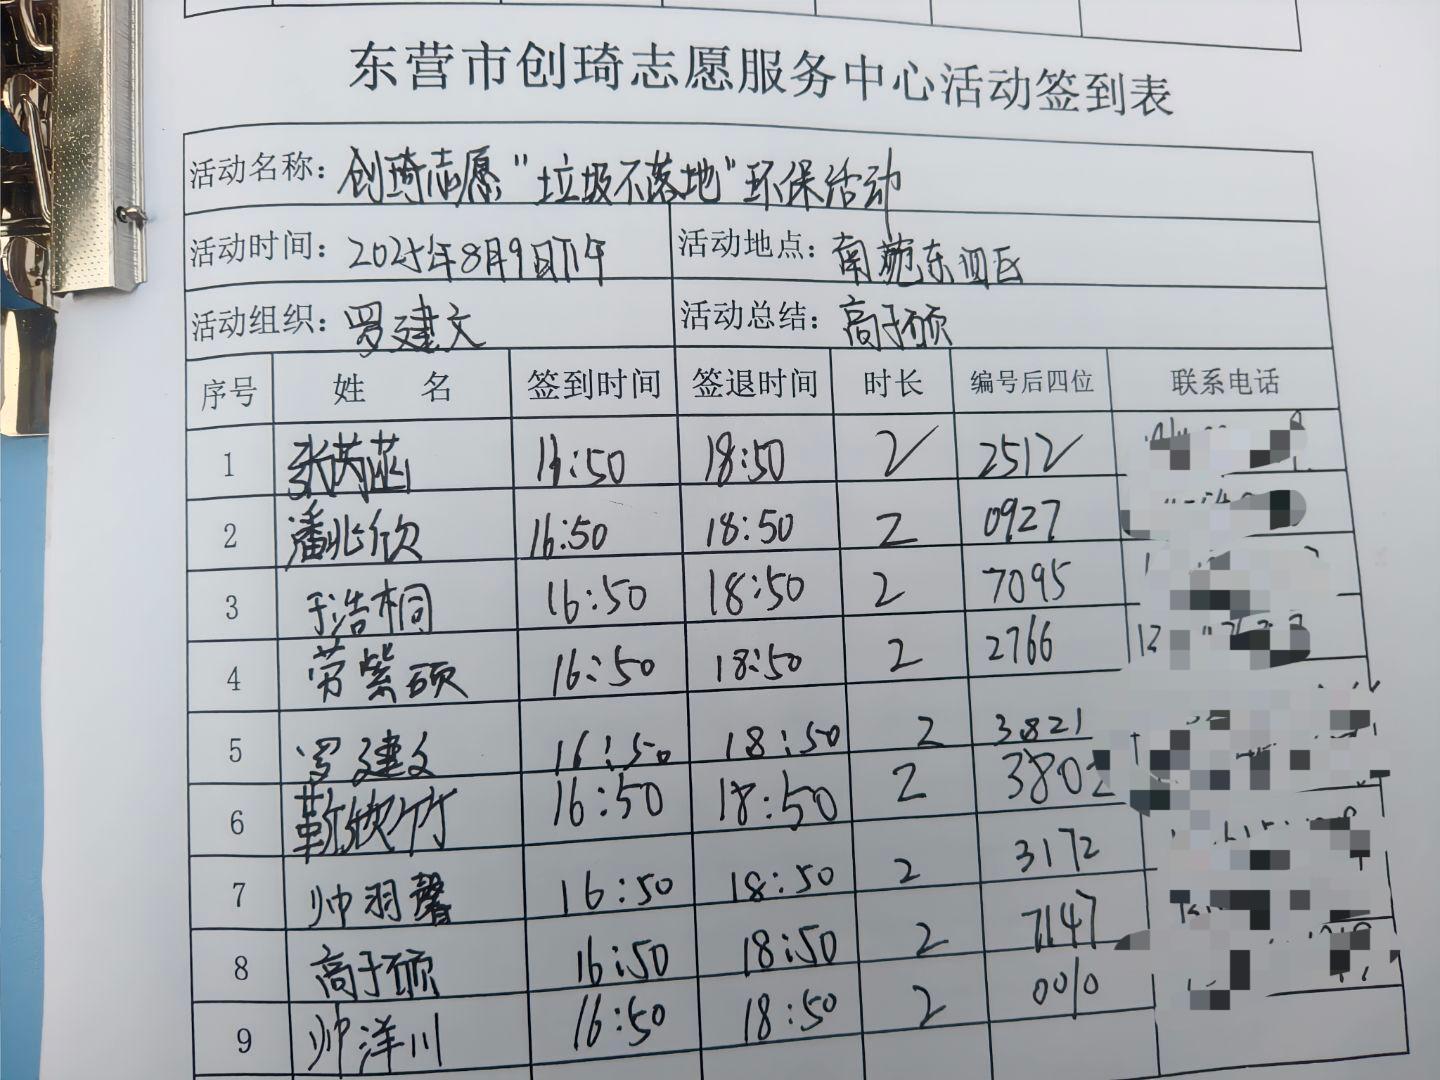 东营市创琦志愿服务中心活动签到表
活动名称：创琦志愿"垃圾不落地"环保活动
活动时间：2025年8月9日下午 活动地点：南苑东四区
活动组织：罗建文 活动总结：高于硕
序号 姓 名 签到时间 签退时间 时长 编号后四位 联系电话
1 张芮菡 16:50 18:50 2 2512
2 潘兆欣 16:50 18:50 2 0927
3 于浩桐 16:50 18:50 2 7095
4 劳紫硕 16:50 18:50 2 2766
5 罗建文 16:50 18:50 2 3821
6 靳欣竹 16:50 18:50 2 3802
7 帅羽馨 16:50 18:50 2 3172
8 高于硕 16:50 18:50 2 7147
9 帅洋川 16:50 18:50 2 0010